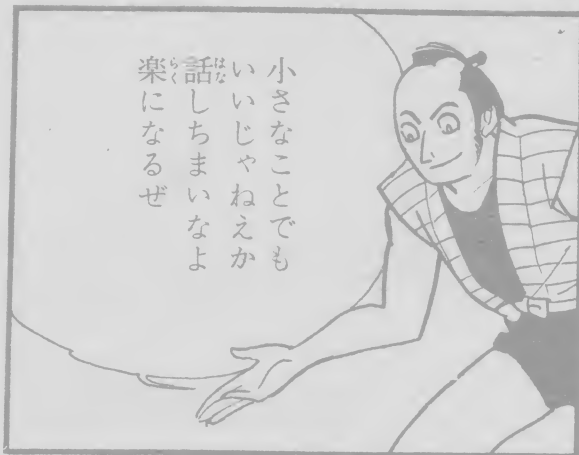 小さなことでも
いいじゃねえか
話しちまいなよ
楽になるぜ